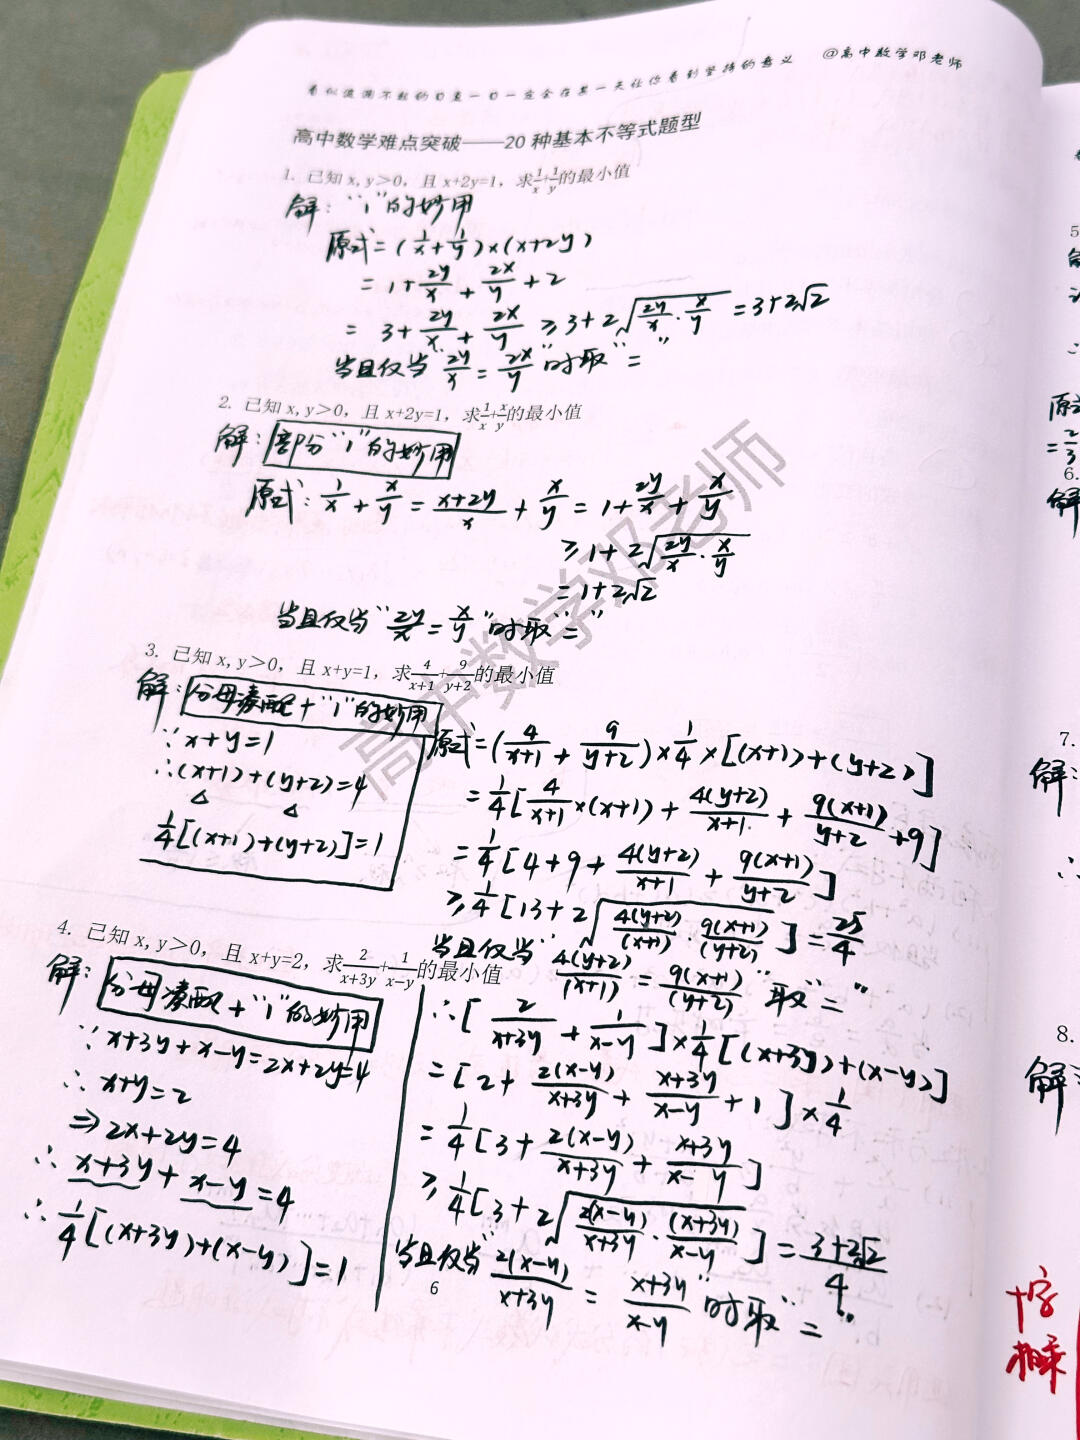 看似波澜不惊的日复一日一定会在某一天让你看到坚持的意义 @高中数学邓老师
高中数学难点突破——20 种基本不等式题型
1. 已知 x,y＞0，且 x+2y=1，求1/x+1/y的最小值
解："1"的妙用
原式=(1/x+1/y)×(x+2y)
=1+2y/x+2x/y+2
=3+2y/x+2x/y≥3+2√(2y/x·x/y)=3+2√2
当且仅当"2y/x=2x/y"时取"="
2. 已知 x,y＞0，且 x+2y=1，求1/x+x/y的最小值
解：部分"1"的妙用
原式：1/x+x/y=(x+2y)/x+x/y=1+2y/x+x/y
≥1+2√(2y/x·x/y)
=1+2√2
当且仅当"2y/x=x/y"时取"="
3. 已知 x,y＞0，且 x+y=1，求4/(x+1)+9/(y+2)的最小值
解：分母凑配+"1"的妙用
∵x+y=1
∴(x+1)+(y+2)=4
1/4[(x+1)+(y+2)]=1
原式=(4/(x+1)+9/(y+2))×1/4×[(x+1)+(y+2)]
=1/4[4/(x+1)×(x+1)+4(y+2)/(x+1)+9(x+1)/(y+2)+9]
=1/4[4+9+4(y+2)/(x+1)+9(x+1)/(y+2)]
≥1/4[13+2√(4(y+2)/(x+1)·9(x+1)/(y+2))]=25/4
当且仅当"4(y+2)/(x+1)=9(x+1)/(y+2)"取"="
4. 已知 x,y＞0，且 x+y=2，求2/(x+3y)+1/(x-y)的最小值
解：分母凑配+"1"的妙用
∵x+3y+x-y=2x+2y=4
∴x+y=2
⇒2x+2y=4
∴x+3y+x-y=4
∴1/4[(x+3y)+(x-y)]=1
∴[2/(x+3y)+1/(x-y)]×1/4[(x+3y)+(x-y)]
=[2+2(x-y)/(x+3y)+(x+3y)/(x-y)+1]×1/4
=1/4[3+2(x-y)/(x+3y)+(x+3y)/(x-y)]
≥1/4[3+2√(2(x-y)/(x+3y)·(x+3y)/(x-y))]=(3+2√2)/4
当且仅当"2(x-y)/(x+3y)=(x+3y)/(x-y)"时取"="
6
高中数学邓老师
5
解
原式
=2/3
6.
解
7.
解：
∴
8.
解：
十字
相乘